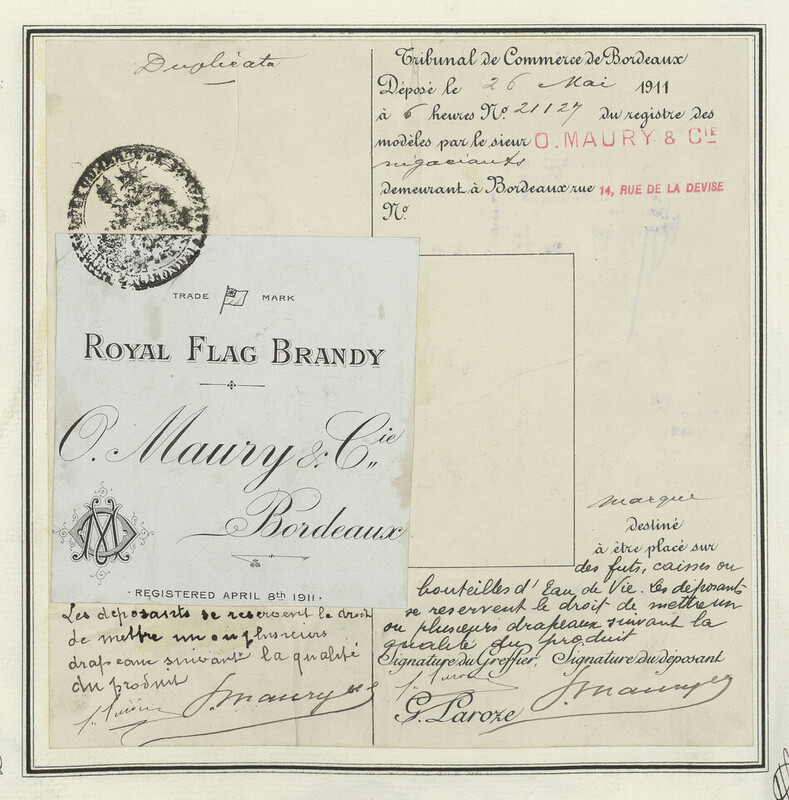 Duplicata
Tribunal de Commerce de Bordeaux
Déposé le 26 Mai 1911
à 6 heures Nº 21127 du registre des
modèles par le sieur O. MAURY & CIE
négociants
demeurant à Bordeaux rue 14, RUE DE LA DEVISE
Nº
TRADE MARK
ROYAL FLAG BRANDY
O. Maury & Cie
Bordeaux
· REGISTERED APRIL 8th 1911 ·
Les déposants se reservent le droit
de mettre un ou plusieurs
drapeaux suivant la qualité
du produit
O. Maury & Cie
marque
destiné
à être placé sur
des futs, caisses ou
bouteilles d'Eau de Vie. Les déposants
se reservent le droit de mettre un
ou plusieurs drapeaux suivant la
qualité du produit
Signature du Greffier, Signature du déposant
O. Maury & Cie
G. Laroze